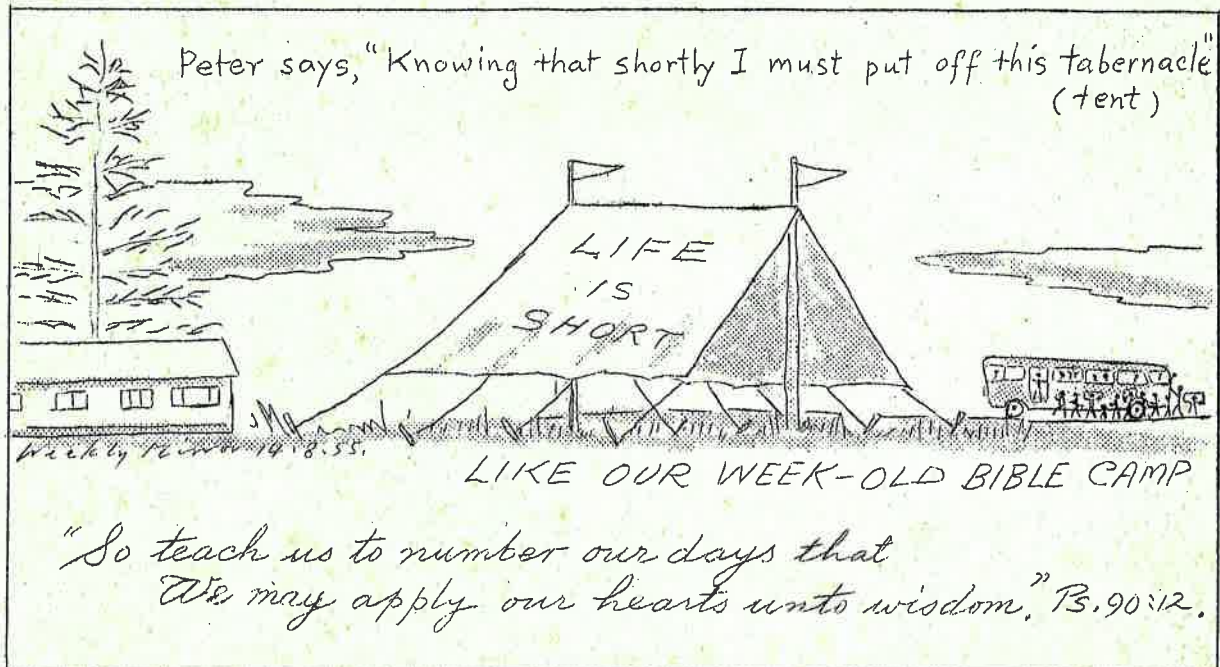 Peter says, "Knowing that shortly I must put off this tabernacle"
(tent)
LIFE
IS
SHORT
Weekly Mirror 14.8.55.
LIKE OUR WEEK-OLD BIBLE CAMP
"So teach us to number our days that
We may apply our hearts unto wisdom." Ps. 90:12.